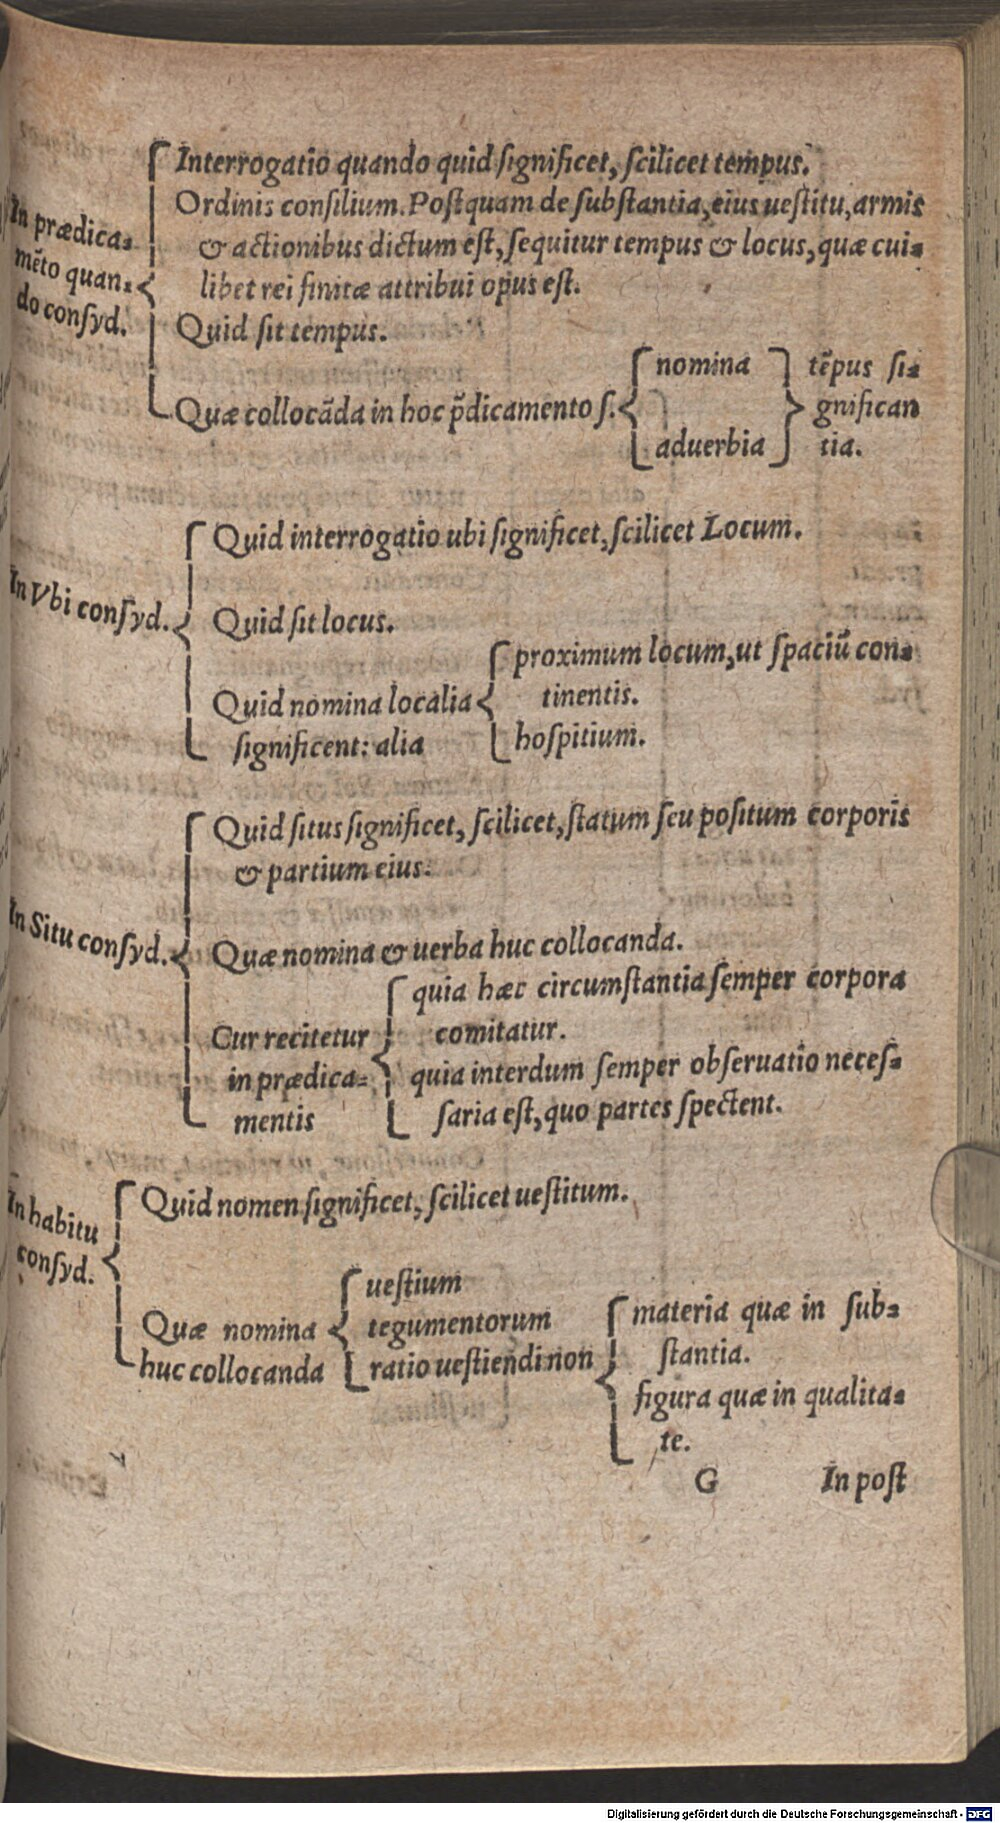 In prædica-
mẽto quan-
do consyd.
Interrogatio quando quid significet, scilicet tempus.
Ordinis consilium. Postquam de substantia, eius uestitu, armis
& actionibus dictum est, sequitur tempus & locus, quæ cui-
libet rei finitæ attribui opus est.
Quid sit tempus.
Quæ collocãda in hoc p̃dicamento s.
nomina
aduerbia
tẽpus si-
gnifican
tia.
In Vbi consyd.
Quid interrogatio ubi significet, scilicet Locum.
Quid sit locus.
Quid nomina localia
significent: alia
proximum locum, ut spaciũ con-
tinentis.
hospitium.
In Situ consyd.
Quid situs significet, scilicet, statum seu positum corporis
& partium eius.
Quæ nomina & uerba huc collocanda.
Cur recitetur
in prædica-
mentis
quia hæc circumstantia semper corpora
comitatur.
quia interdum semper obseruatio neces-
saria est, quo partes spectent.
In habitu
consyd.
Quid nomen significet, scilicet uestitum.
Quæ nomina
huc collocanda
uestium
tegumentorum
ratio uestiendi non
materia quæ in sub-
stantia.
figura quæ in qualita-
te.
G In post
Digitalisierung gefördert durch die Deutsche Forschungsgemeinschaft - DFG